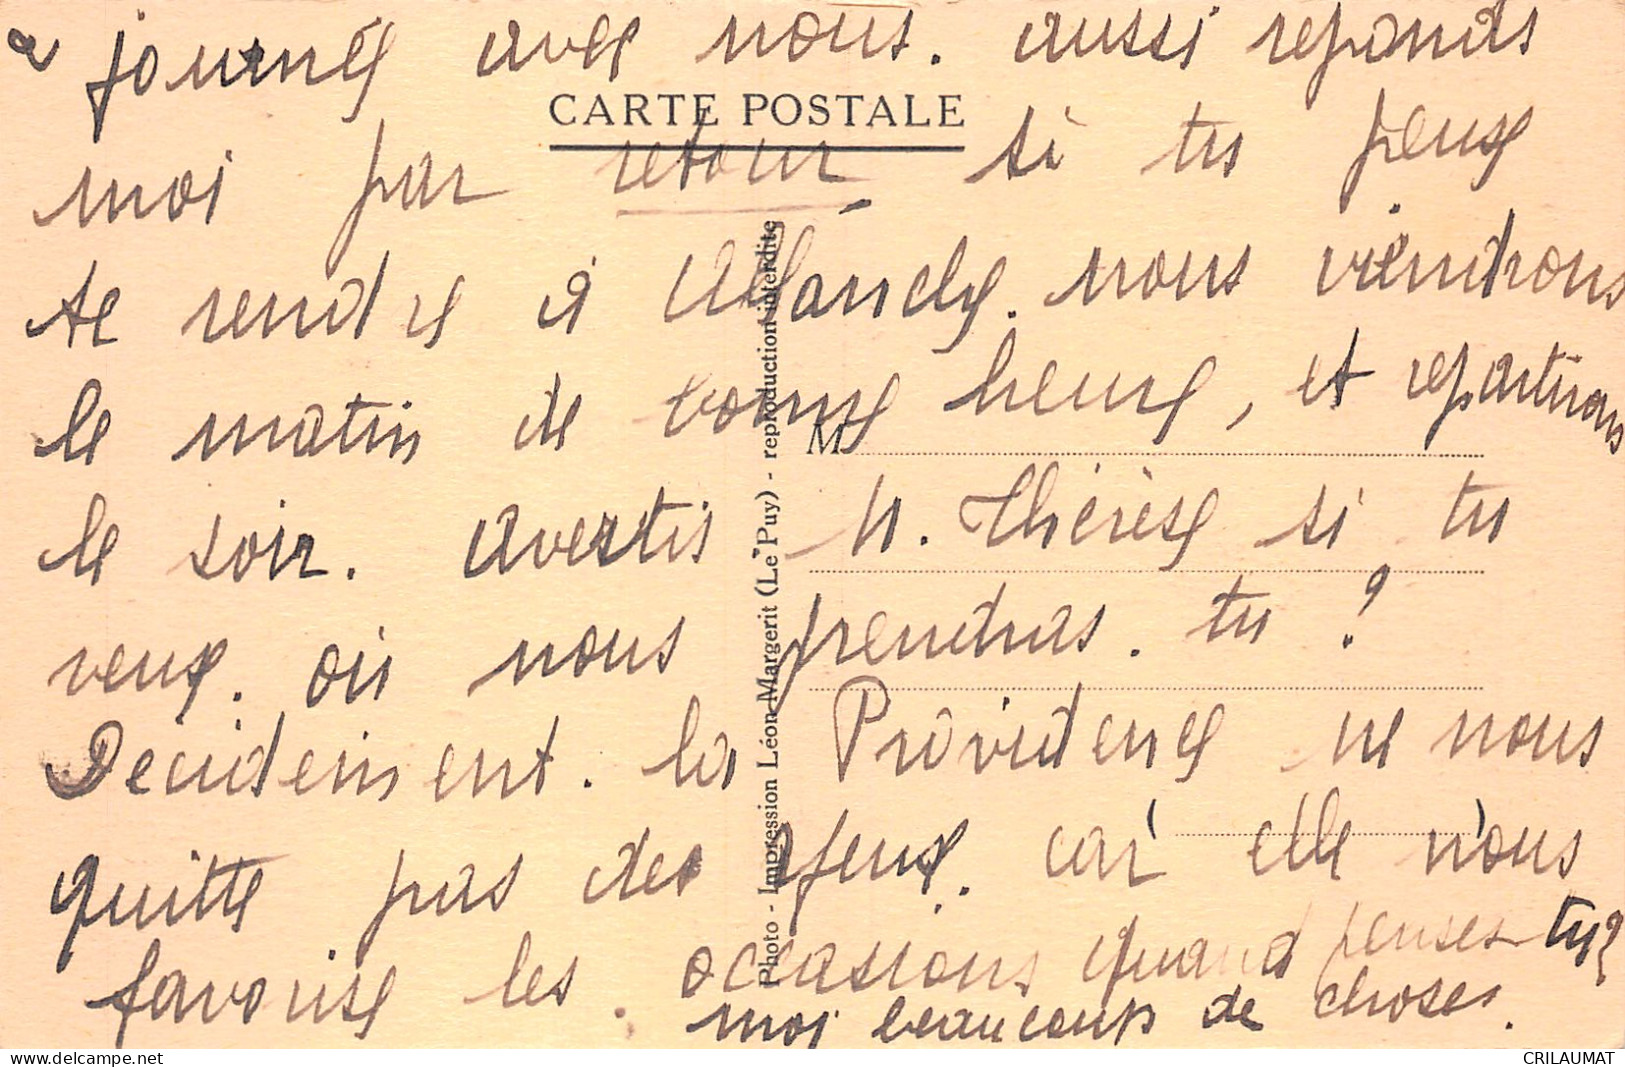 journée avec nous. aussi reponds
CARTE POSTALE
moi par retour si tu peux
te rendre à Allanche. nous viendrons
le matin de bonne heure, et repartirons
M
le soir. avertis M. Thérèse si tu
veux. où nous prendras. tu ?
Decidement. la Providence ne nous
quitte pas des yeux. car elle nous
favorise les occasions quand penses-tu?
moi beaucoup de choses.
Photo - Impression Léon Margerit (Le Puy) - reproduction interdite
CRILAUMAT